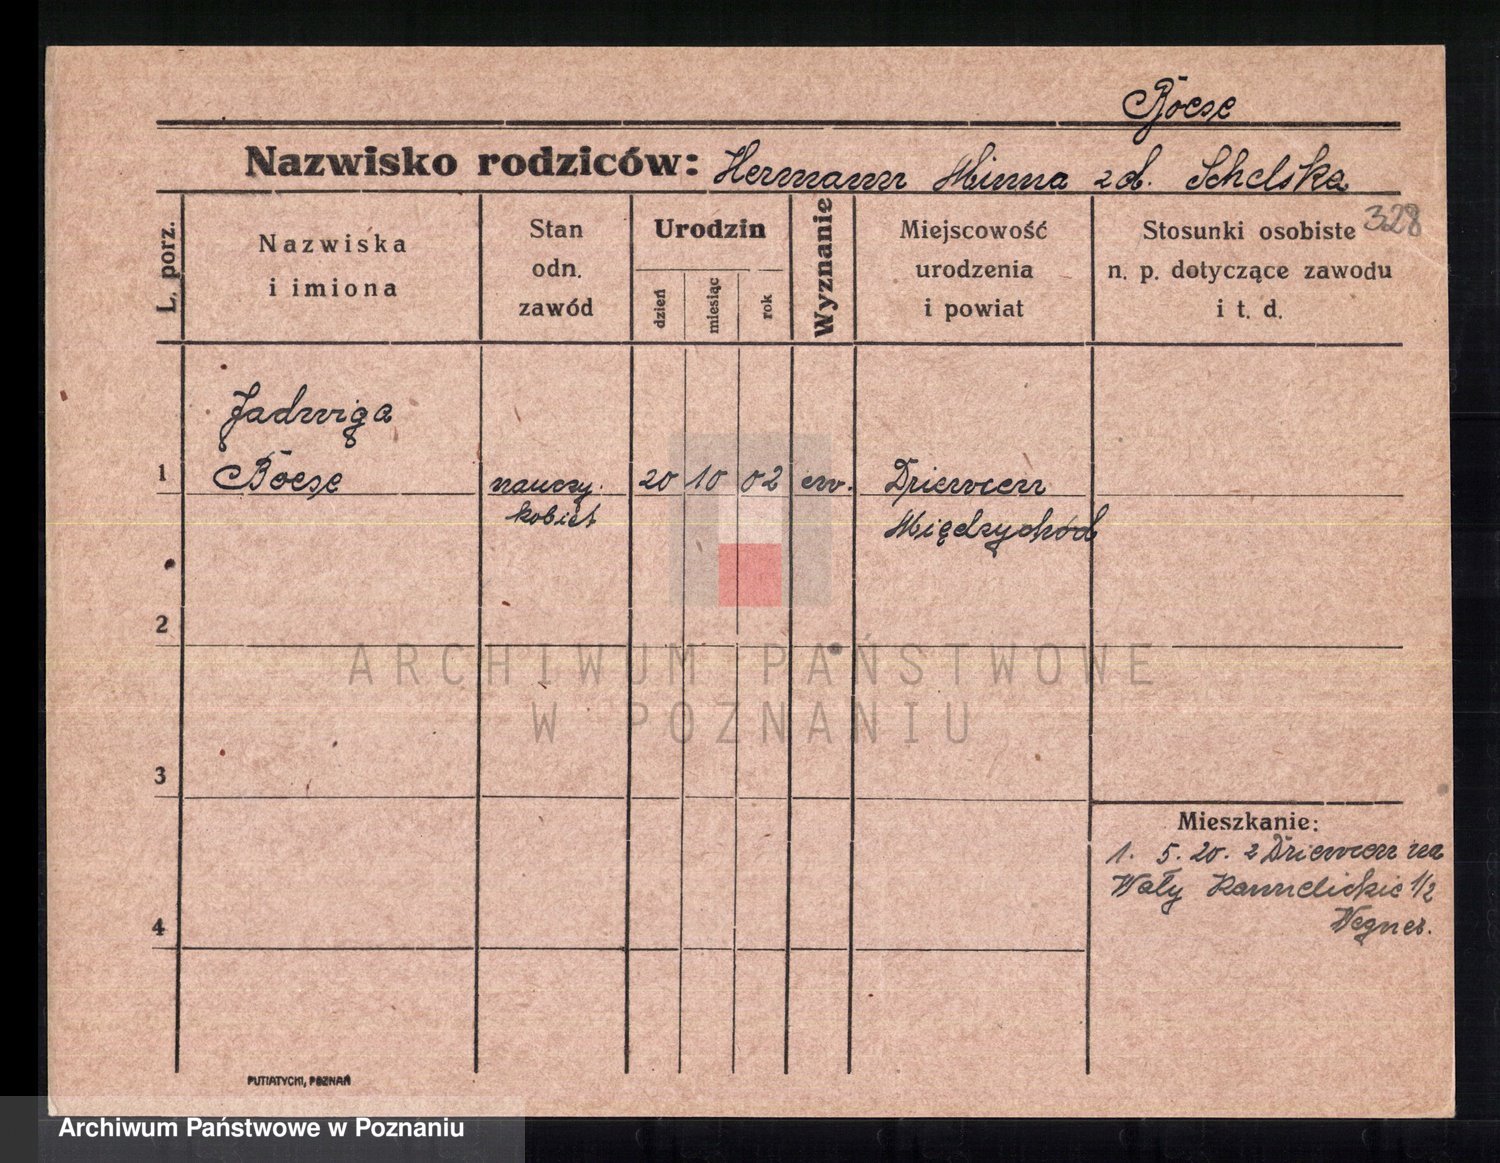 Böese
Nazwisko rodziców: Hermann Minna zd. Schelska
328
L. porz.
Nazwiska
i imiona
Stan
odn.
zawód
Urodzin
dzień
miesiąc
rok
Wyznanie
Miejscowość
urodzenia
i powiat
Stosunki osobiste
n. p. dotyczące zawodu
i t. d.
Jadwiga
1 Böese nauczy. 20 10 02 ew. Dziewcen
kobiet Międzychód
2
ARCHIWUM PAŃSTWOWE
W POZNANIU
3
Mieszkanie:
1. 5. 20. z Dziewcen na
Wały 1/2
4
Wegner.
PUTIATYCKI, POZNAŃ
Archiwum Państwowe w Poznaniu